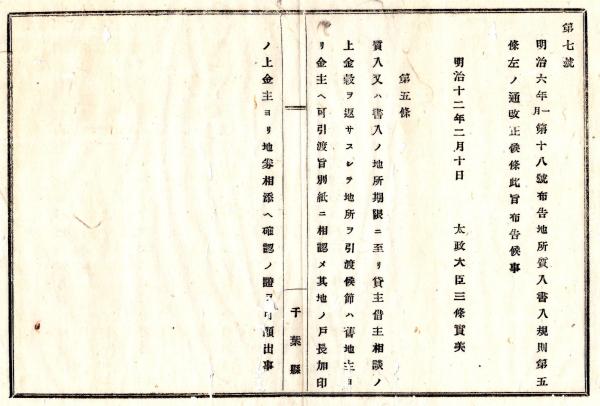 第七號
明治六年一月第十八號布告地所質入書入規則第五
條左ノ通改正候條此旨布告候事
明治十二年二月十日　太政大臣三條實美
第五條
質入又ハ書入ノ地所期限ニ至リ貸主借主相談ノ
上金穀ヲ返サスシテ地所ヲ引渡候節ハ舊地主ヨ
リ金主ヘ可引渡旨別紙ニ相認メ其地ノ戸長加印
千葉縣
ノ上金主ヨリ地劵相添ヘ確認ノ證
可願出事